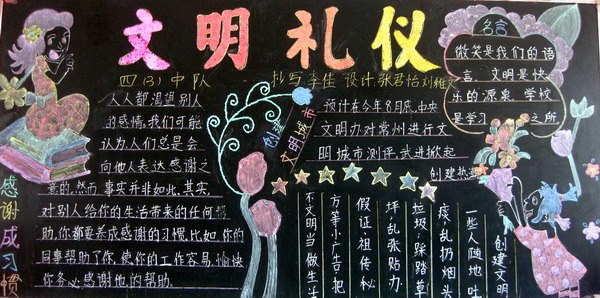 文明礼仪
四(3)中队
抄写:李佳 设计:张君怡 刘雅
人人都渴望别人
的感情,我们可能
认为人们总是会
向他人表达感谢之
意的,然而,事实并非如此,其实,
对别人给你的生活带来的任何帮
助,你都要养成感谢的习惯,比如,你的
同事帮助了你,使你的工作容易、愉快
你务必感谢他的帮助。
感谢成习惯
创建
文明城市
名言
微笑是我们的语
言,文明是快
乐的源泉,学校
是学习 之所
预计在今年8月底,中央
文明办对常州进行文
明城市测评,武进掀起
创建热
创建文明
一些人随地吐
痰,乱扔烟头
垃圾,踩踏草
坪,乱张贴办
假证,祖传秘
方等小广告,把
不文明当做生